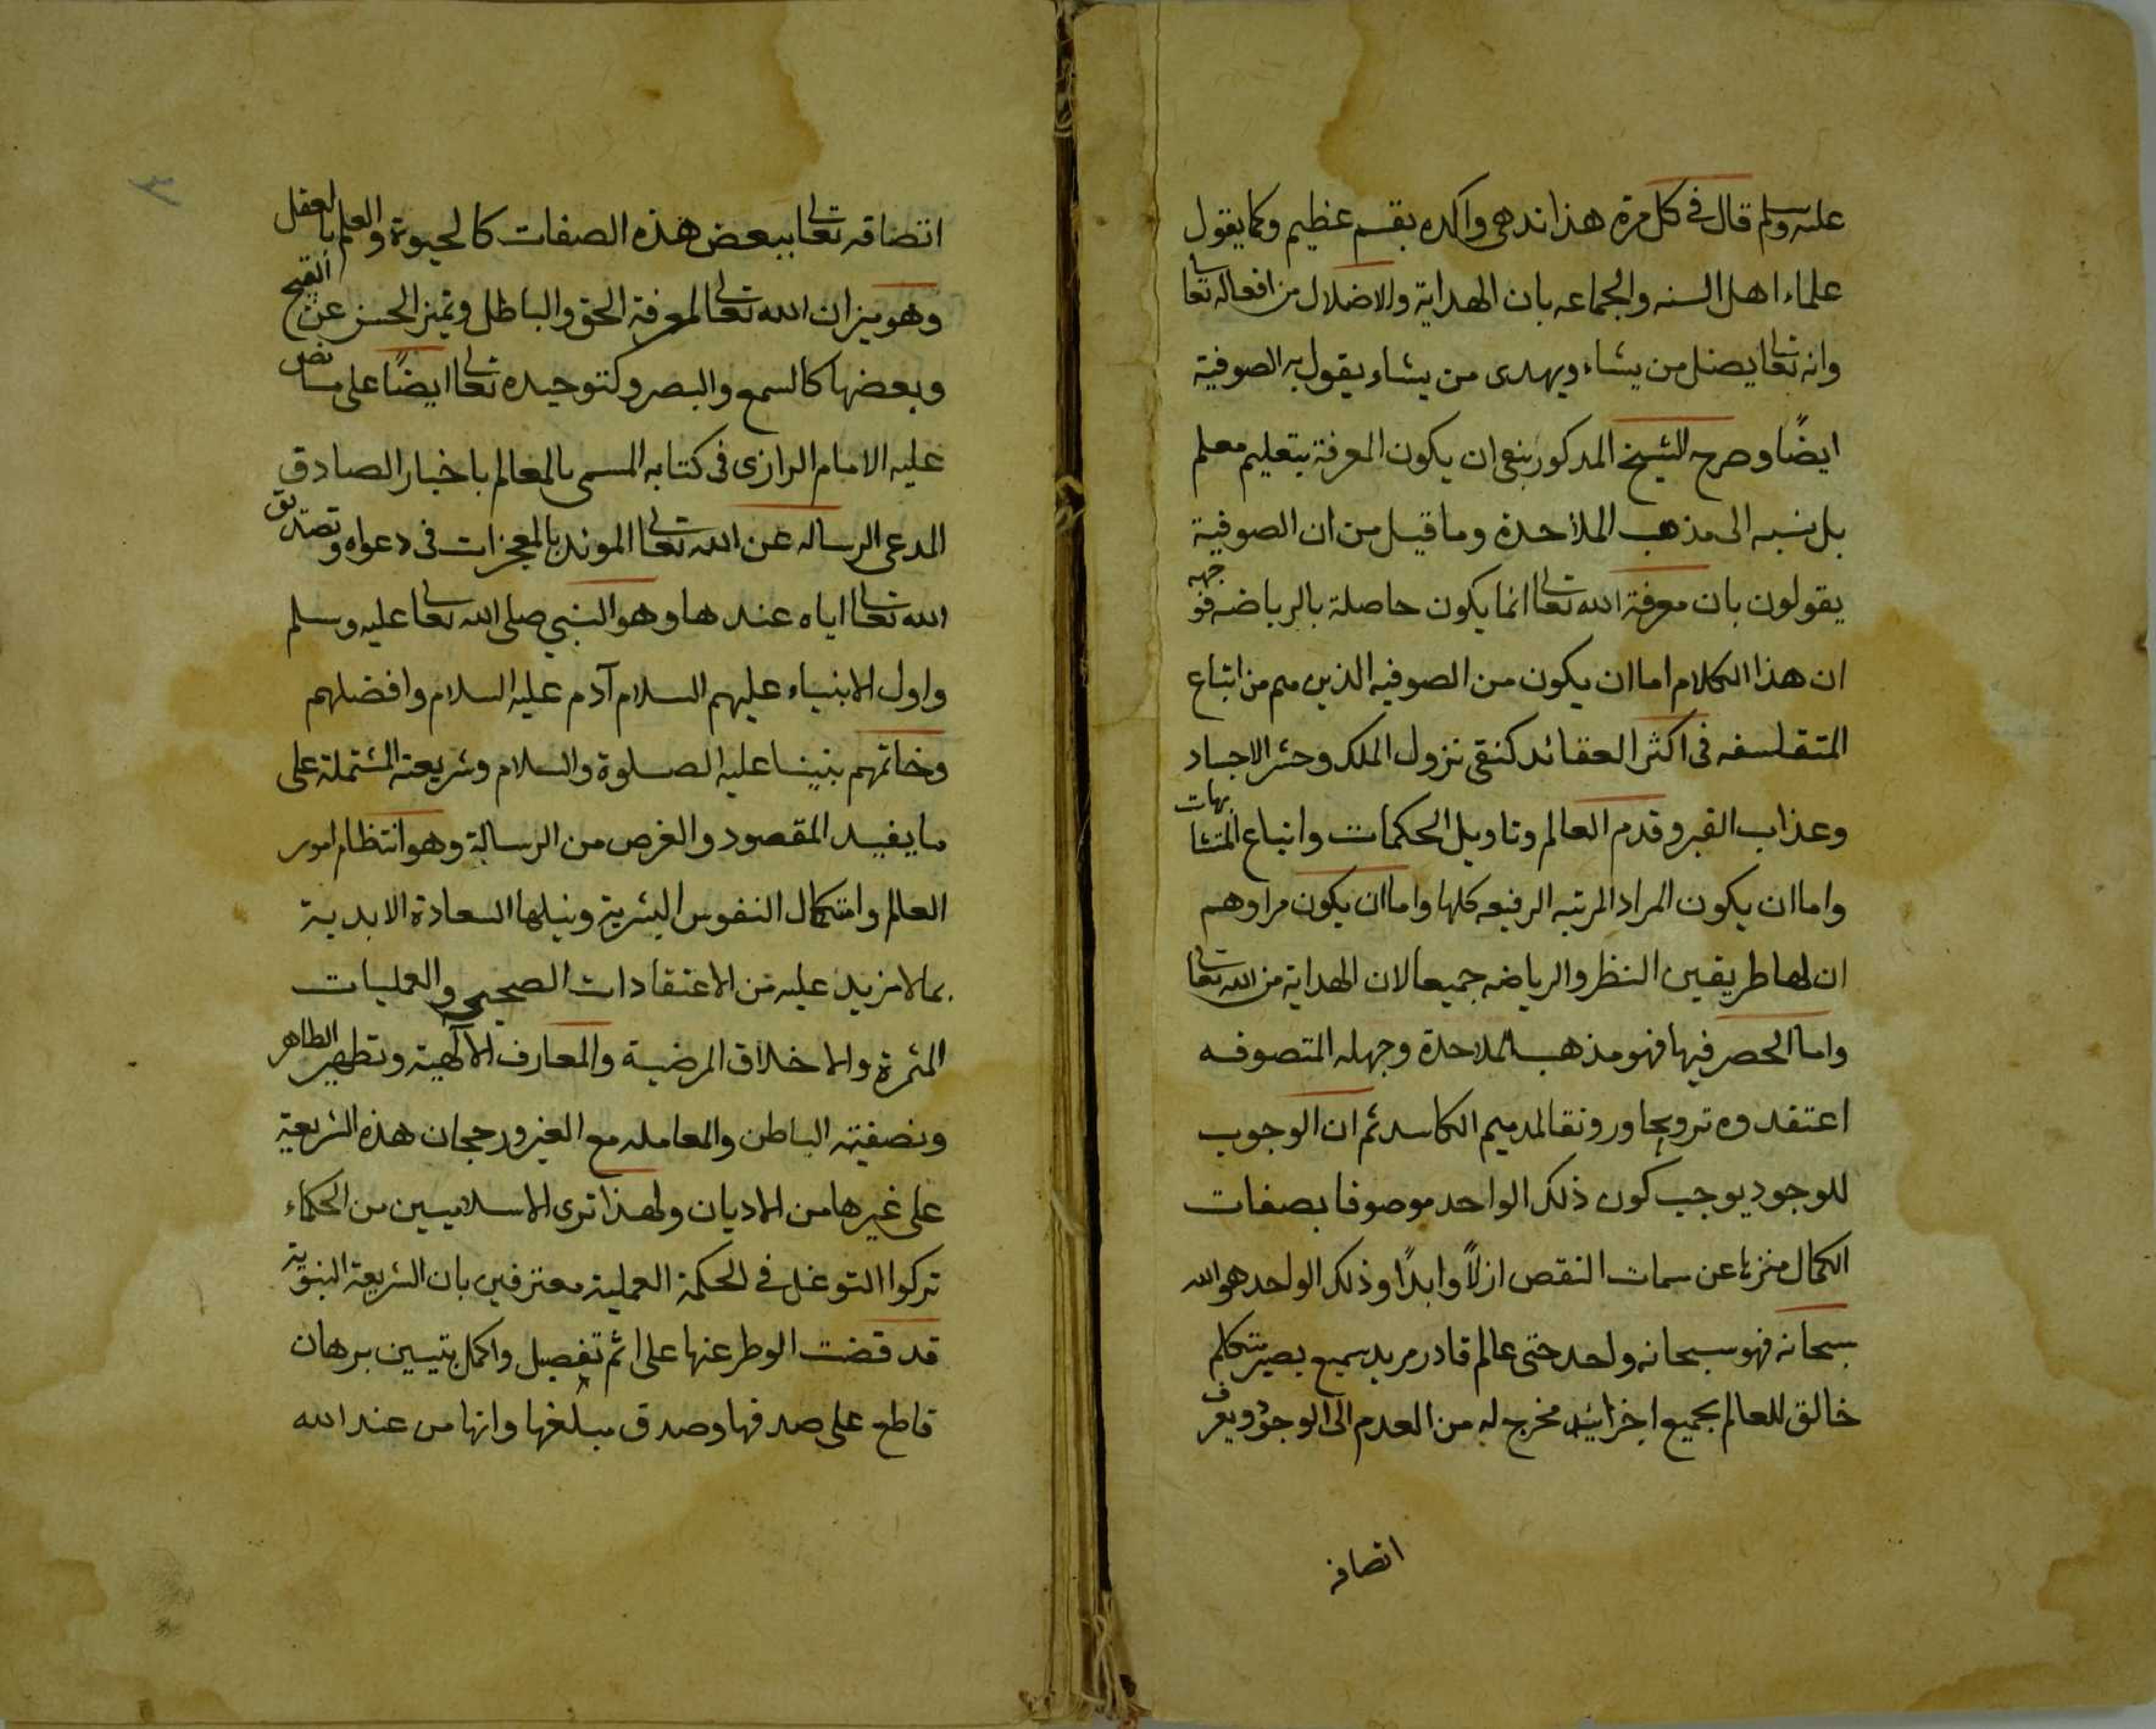 عليه وسلم قال في كل مرة هذا ندهى واكده بقسم عظيم وكما يقول
علماء اهل السنه والجماعه بان الهداية والاضلال من افعاله تعالى
وانه تعالى يضل من يشاء ويهدى من يشاء يقول به الصوفية
ايضًا وصرح الشيخ المذكور بنفى ان يكون المعرفة بتعليم معلم
بل نسبه الى مذهب الملاحدة وما قيل من ان الصوفية
يقولون بان معرفة الله تعالى انما يكون حاصلة بالرياضه فوجهه
ان هذا الكلام اما ان يكون من الصوفيه الذين هم من اتباع
المتفلسفه فى اكثر العقائد كنفى نزول الملك وحشر الاجساد
وعذاب القبر وقدم العالم وتاويل المحكمات واتباع المتشابهات
واما ان يكون المراد المرتبه الرفيعه كلها واما ان يكون مرادهم
ان لها طريقين النظر والرياضه جميعا لان الهداية من الله تعالى
واما الحصر فيها فهو مذهب الملاحدة وجهله المتصوفه
اعتقدوه ترويجا ورونقا لمذهبهم الكاسد ثم ان الوجوب
للوجود يوجب كون ذلك الواحد موصوفا بصفات
الكمال منزها عن سمات النقص ازلاً وابدًا وذلك الواحد هو الله
سبحانه فهو سبحانه واحد حى عالم قادر مريد سميع بصير متكلم
خالق للعالم بجميع اجزائه مخرج له من العدم الى الوجود ويعرف
اتصافه
٣
اتصافه تعالى ببعض هذه الصفات كالحيوة والعلم بالعقل
وهو ميزان الله تعالى لمعرفة الحق والباطل وتميز الحسن عن القبيح
وبعضها كالسمع والبصر وكتوحيده تعالى ايضًا على ما نص
عليه الامام الرازى فى كتابه المسمى بالمعالم باخبار الصادق
المدعى الرساله عن الله تعالى المؤيد بالمعجزات فى دعواه وتصديق
الله تعالى اياه عندها وهو النبي صلى الله تعالى عليه وسلم
واول الانبياء عليهم السلام آدم عليه السلام وافضلهم
وخاتمهم نبينا عليه الصلوة والسلام وشريعته المشتملة على
ما يفيد المقصود والغرض من الرسالة وهو انتظام امور
العالم واستكمال النفوس البشرية ونيلها السعادة الابدية
بما لا مزيد عليه من الاعتقادات الصحيحه والعمليات
المثمرة والاخلاق المرضية والمعارف الآلهية وتطهير الظاهر
وتصفيته الباطن والمعامله مع الغير ورجحان هذه الشريعة
على غيرها من الاديان ولهذا ترى الاسلاميين من الحكماء
تركوا التوغل في الحكمة العملية معترفين بان الشريعة النبوية
قد قضت الوطر عنها على اتم تفصيل واكمل تبيين برهان
قاطع على صدقها وصدق مبلغها وانها من عند الله